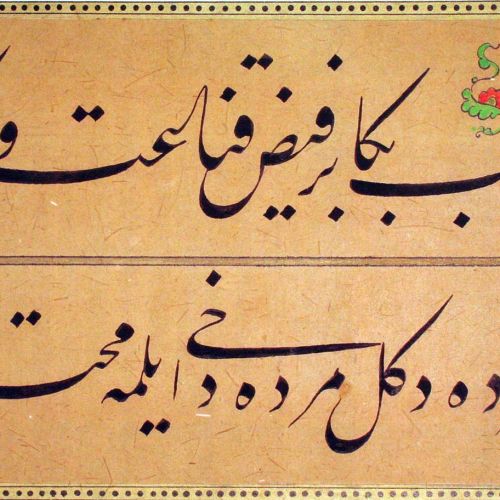 ب بكا بر فیض قناعت و
ده دكل مرده دخی ایلمه محت